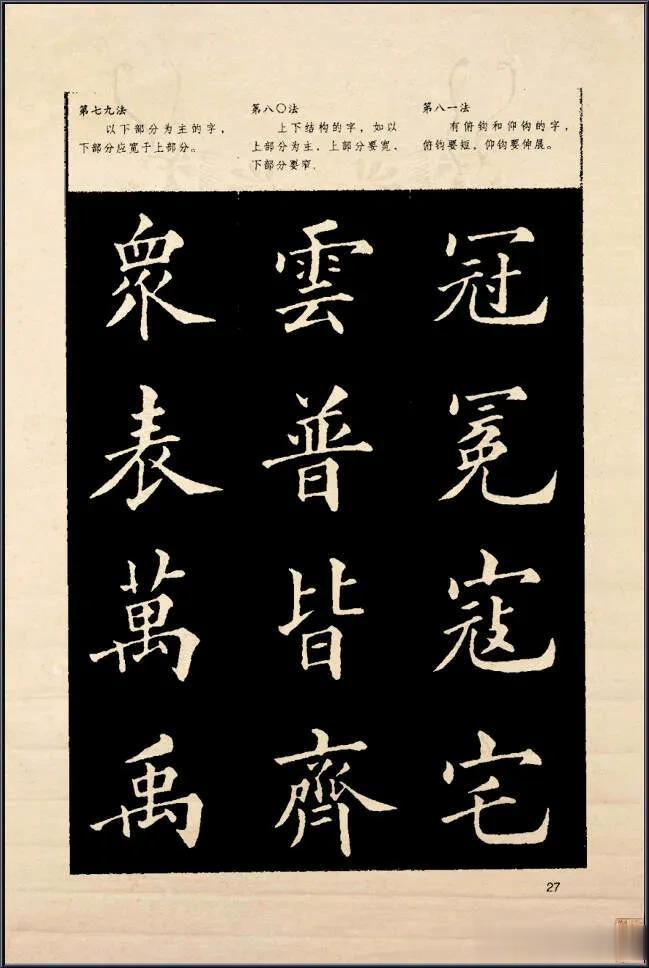 第七九法
以下部分为主的字，
下部分应宽于上部分。
第八〇法
上下结构的字，如以
上部分为主，上部分要宽、
下部分要窄。
第八一法
有俯钩和仰钩的字，
俯钩要短，仰钩要伸展。
眾
表
萬
禹
雲
普
皆
齊
冠
冕
寇
宅
27